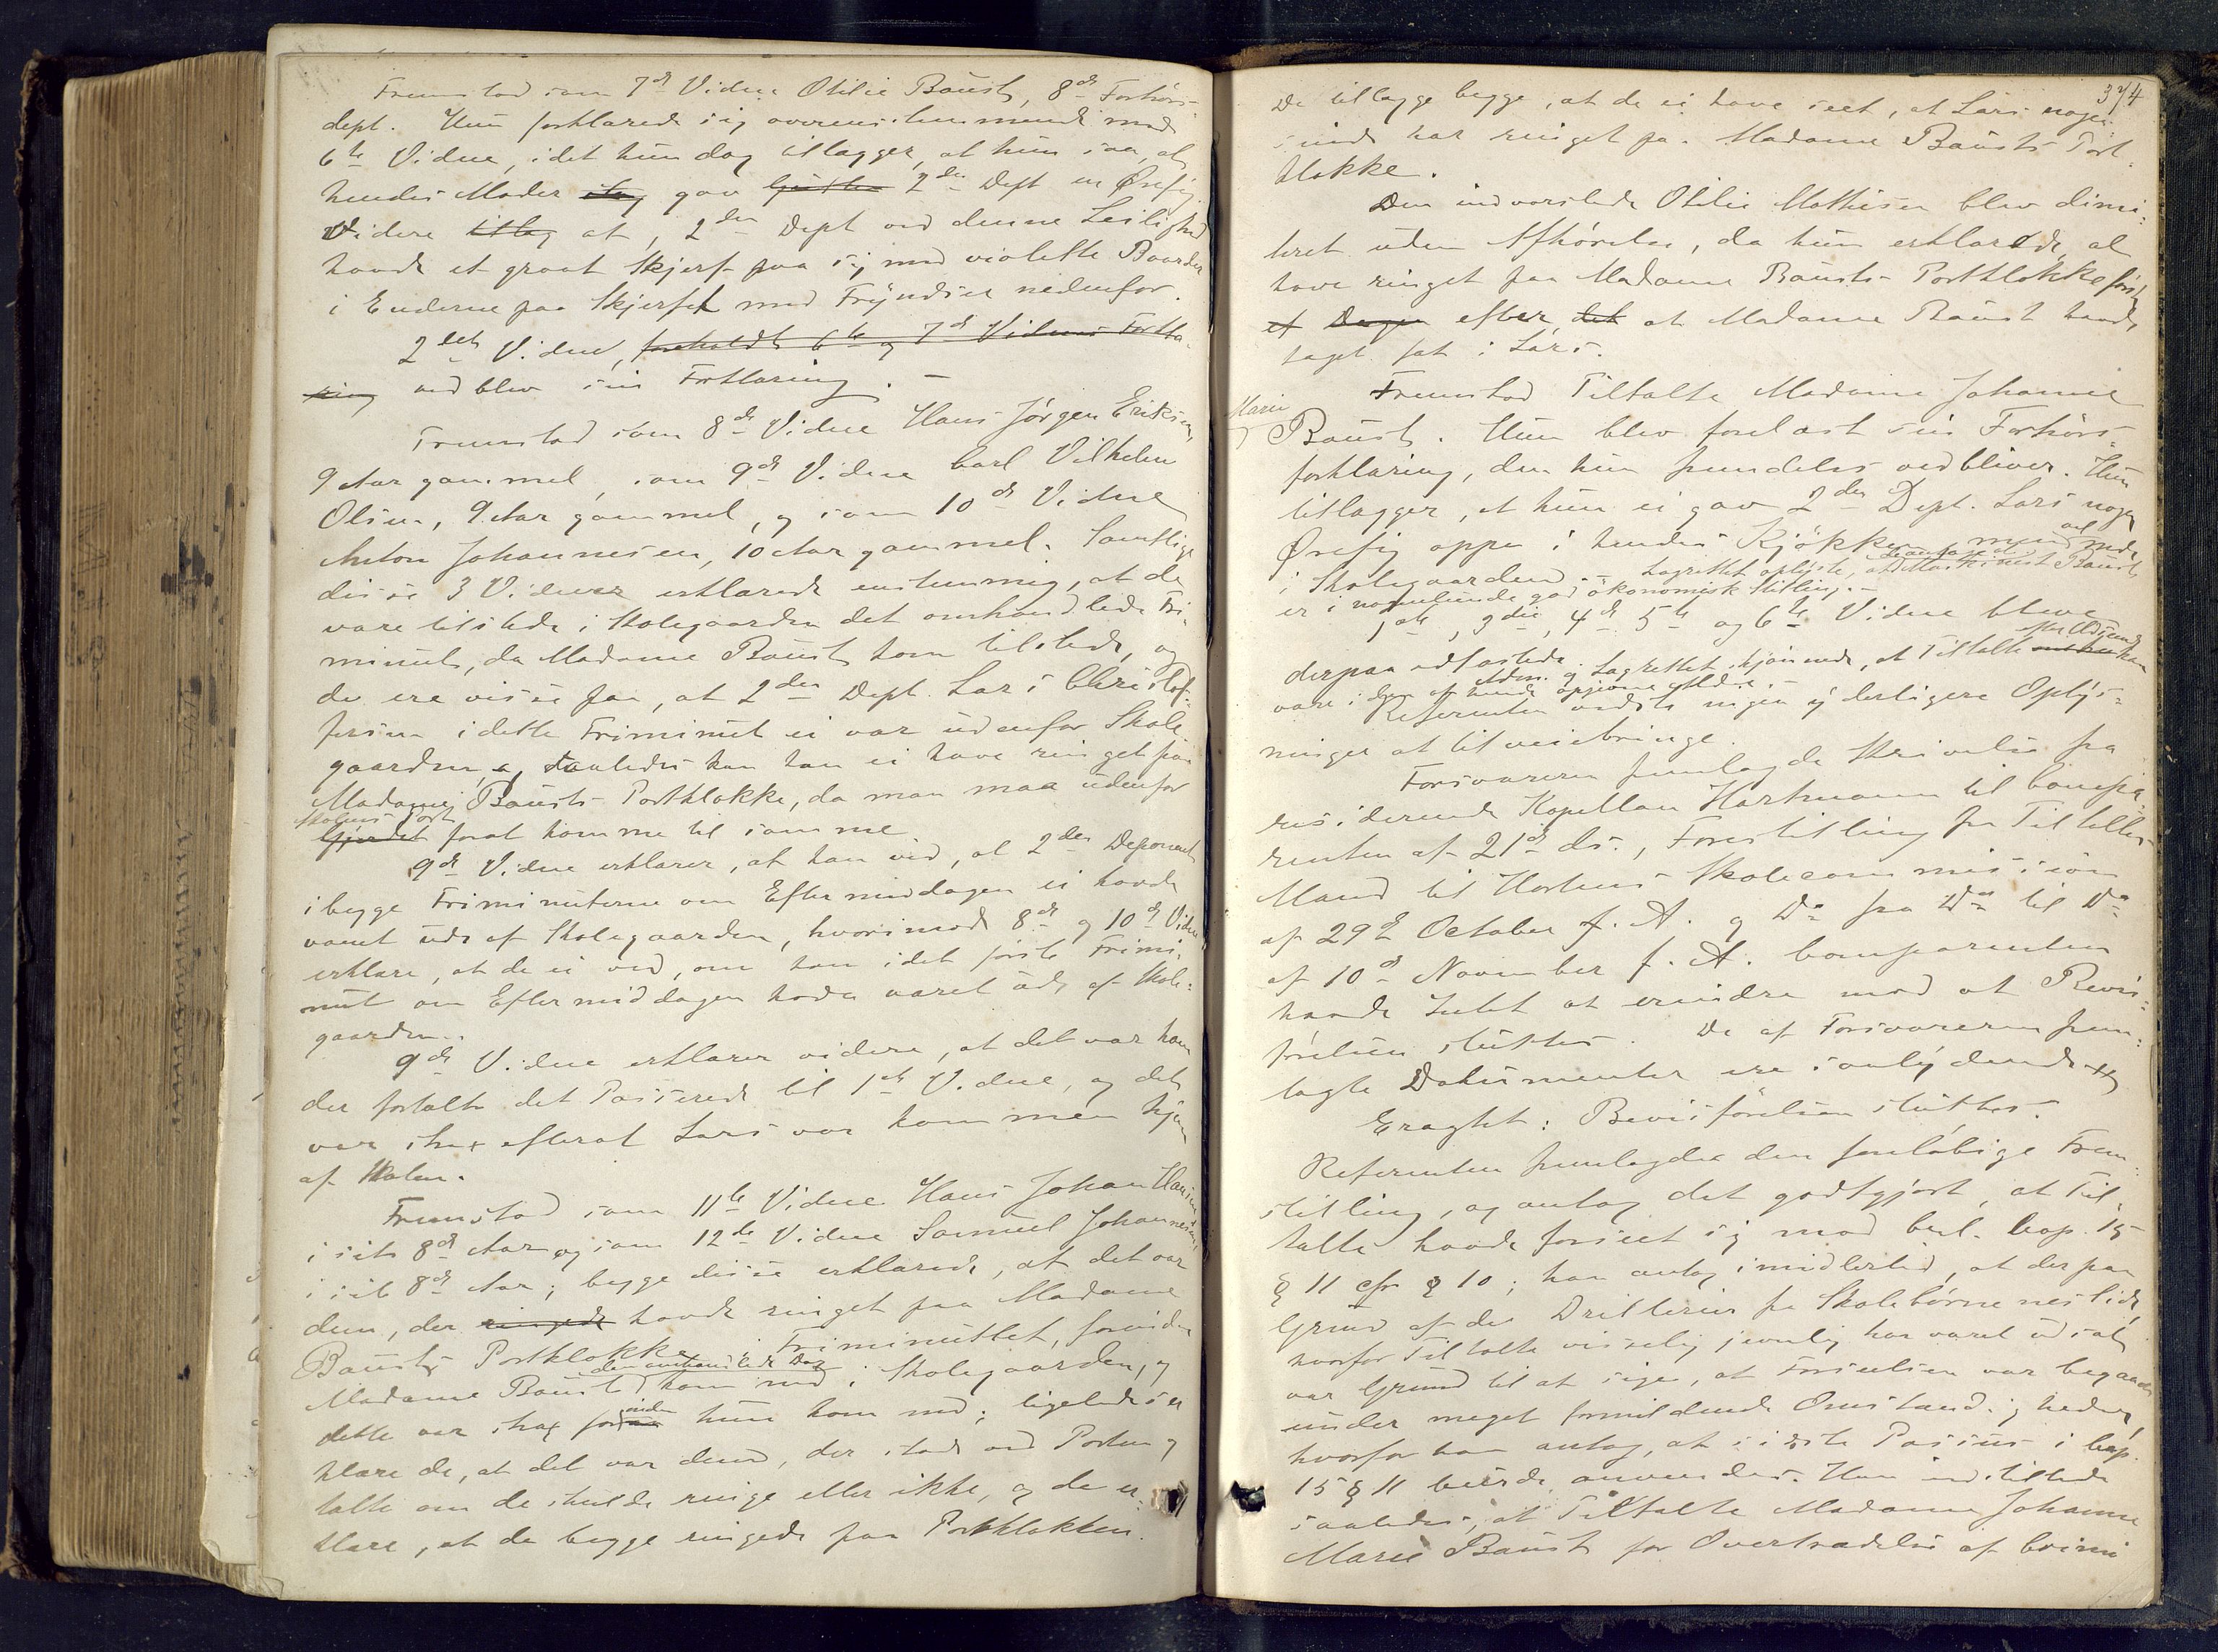 Fremstod som 7de Vidne Otilie Baust, 8de Forhørs-
dept. Hun forklarede sig overensstemmende med
6te Vidne, idet hun dog tillægger, at hun saa, at
hendes Moder gav 2den Dept en Ørefig
Videre at, 2den Dept ved denne Leilighed
havde et graat Skjerf paa sig med violette Baarder
i Enderne paa Skjerfet med Fryndser nedenfor.
2det Vidne, foreholdt 6te og 7de Vidnes Forkla-
ring vedblev sin Forklaring. —
Fremstod som 8de Vidne Hans Jørgen Eriksen,
9 Aar gammel, som 9de Vidne Carl Vilhelm
Olsen, 9 Aar gammel, og som 10de Vidne
Anton Johannesen, 10 Aar gammel. Samtlige
disse 3 Vidner erklærede enstemmig, at de
vare tilstede i Skolegaarden det omhandlede Fri-
minut, da Madame Baust kom tilstede, og
de ere visse paa, at 2den Dept. Lars Christof-
fersen i dette Friminut ei var udenfor Skole-
gaarden, saaledes kan han ei have ringet paa
Madame Bausts Portklokke, da man maa udenfor
Skolens Port
Gjerdet forat komme til samme.
9de Vidne erklærer, at han ved, at 2den Deponent
i begge Friminuterne om Eftermiddagen ei havde
været ude af Skolegaarden, hvorimod 8de og 10de Vidne
erklære, at de ei ved, om han i det første Frimi-
nut om Eftermiddagen havde været ude af Skole-
gaarden.
9de Vidne erklærer videre, at det var ham
der fortalte det Passerede til 1ste Vidne, og det
var strax efterat Lars var kommen hjem
af Skolen.
Fremstod som 11te Vidne Hans Johan Hansen
i sit 8de Aar og som 12te Vidne Samuel Johannesen,
i sit 8de Aar; begge disse erklærede, at det var
dem, der ringede havde ringet paa Madame
Bausts Portklokke i Friminuttet, forinden
den omhandlede Dag
Madame Baust kom ned i Skolegaarden, og
dette var strax forinden hun kom ned; ligeledes er-
klære de, at det var dem, der stod ved Porten og
talte om de skulde ringe eller ikke, og de er-
klære, at de begge ringede paa Portklokken.
374
De tillægge begge, at de ei have seet, at Lars nogen-
sinde har ringet paa Madame Bausts Port-
klokke.
Den indvarslede Otilie Mathisen blev dimi-
teret uden Afhørelse, da hun erklærede, at
have ringet paa Madame Bausts Portklokke først
et Dage efter, det at Madame Baust havde
taget fat i Lars.
Fremstod Tiltalte Madame Johanne
Marie
Baust. Hun blev forelæst sin Forhørs-
forklaring, den hun fremdeles vedbliver. Hun
tillægger, at hun ei gav 2den Dept. Lars nogen
Ørefig oppe i hendes Kjøkken, men vel nede
i Skolegaarden. — Lagrettet oplyste, at Baust
er i nogenlunde god økonomisk Stilling. —
1ste, 3die, 4de 5te og 6te Vidne bleve
derpaa edfæstede. Lagrettet skjønnede, at Tiltalte efter Udseende kan
være i den af hende opgivne Alder. —
Referenten vidste ingen yderligere Oplys-
ninger at tilveiebringe.
Forsvareren fremlagde Skrivelse fra
residerende Kapellan Hartmann til Compa-
renten af 21de ds., Forestilling fra Tiltaltes
Mand til Hortens Skolecommission
af 29de October f. A. og Do fra Do til Do
af 10de November f. A. Comparenten
havde Intet at erindre mod at Bevis-
førelsen sluttes. De af Forsvareren frem-
lagte Dokumenter ere saalydende
Eragtet: Bevisførelsen sluttes.
Referenten fremlagde den foreløbige Frem-
stilling, og antog det godtgjort, at Til-
talte havde forseet sig mod Crl. Cap. 15
§ 11 cfr § 10; han antog imidlertid, at der paa
Grund af de Drillerier fra Skolebørnenes Side,
hvorfor Tiltalte visselig jevnlig har været udsat
var Grund til at sige, at Forseelsen var begaaet
under meget formildende Omstændigheder,
hvorfor han antog, at sidste Passus i Cap.
15 § 11 burde anvendes. Han indstillede
saaledes, at Tiltalte Madame Johanne
Marie Baust for Overtrædelse af Crimi